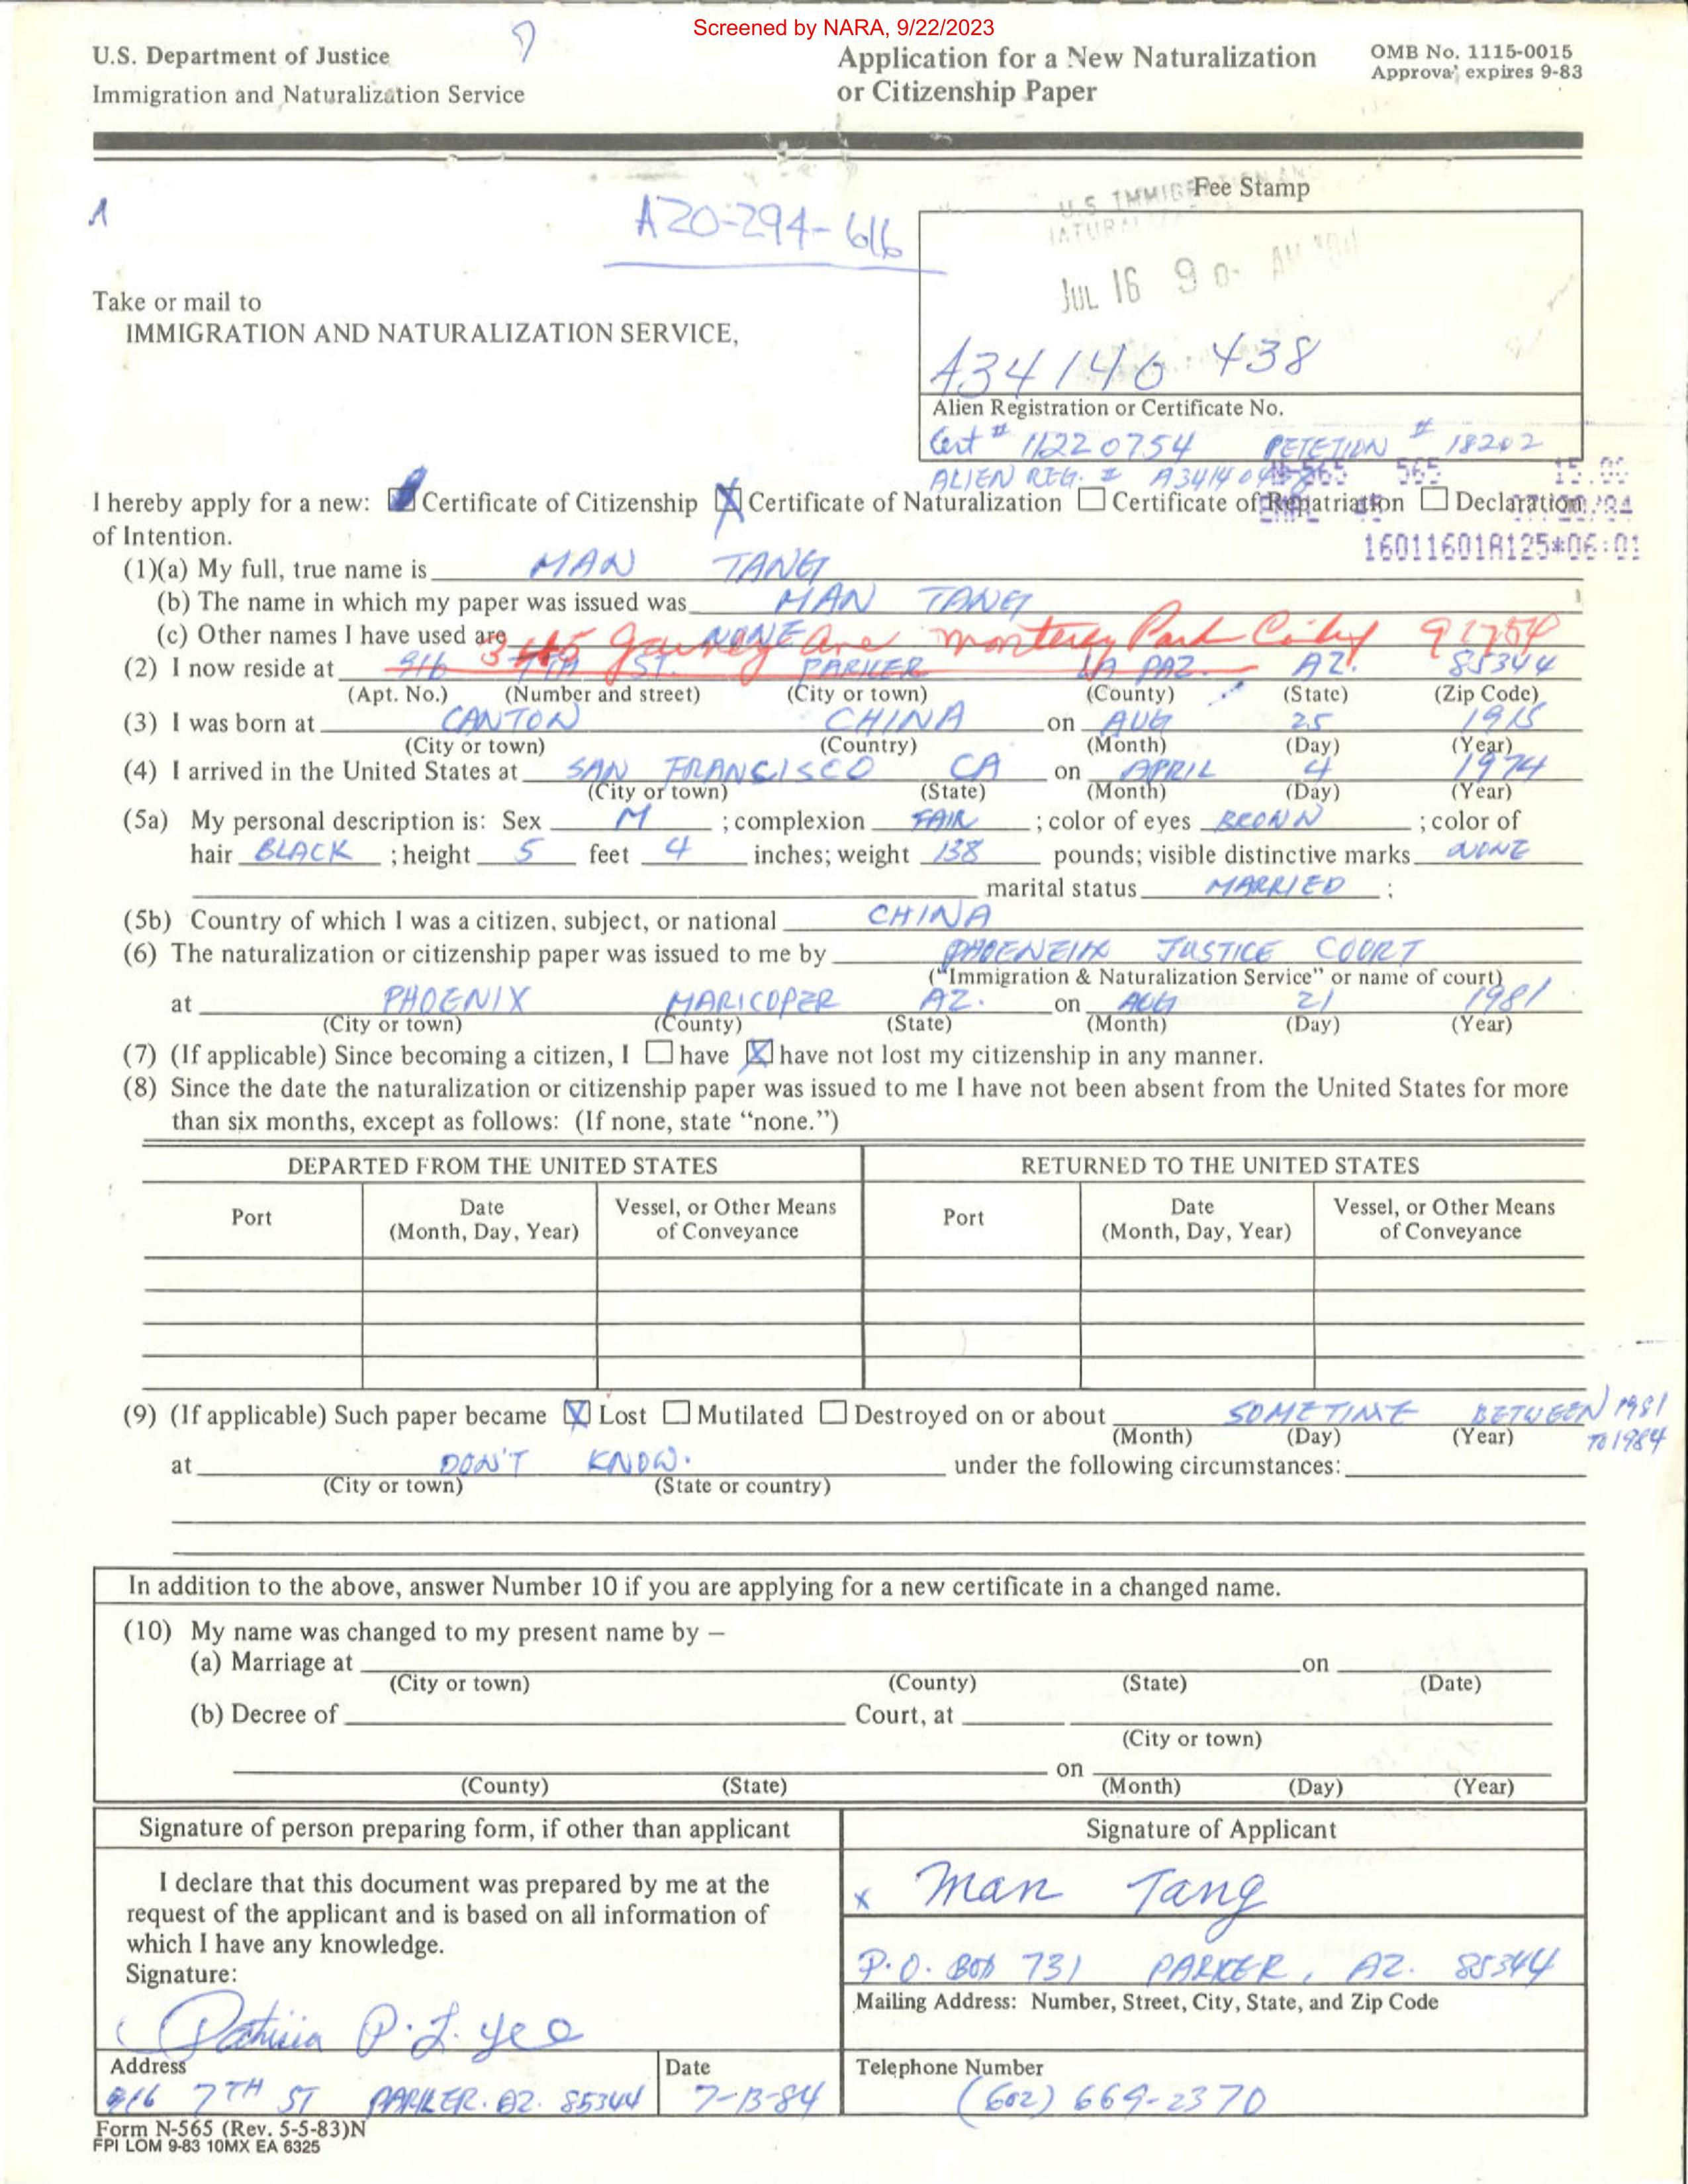 Screened by NARA, 9/22/2023
U.S. Department of Justice
Immigration and Naturalization Service
Application for a New Naturalization
or Citizenship Paper
OMB No. 1115-0015
Approval expires 9-83
A20-294-616
Fee Stamp
U.S. IMMIGRATION AN
NATURAL
JUL 16 9
Take or mail to
IMMIGRATION AND NATURALIZATION SERVICE,
A34 140 438
Alien Registration or Certificate No.
Cert # 11220754 PETETION # 18202
ALIEN REG. # A34140438
565 15.00
I hereby apply for a new: Certificate of Citizenship X Certificate of Naturalization Certificate of Repatriation Declaration
of Intention.
16011601A125*06:01
(1)(a) My full, true name is MAN TANG
(b) The name in which my paper was issued was MAN TANG
(c) Other names I have used are NONE
Ave Monterey Park City 91754
(2) I now reside at 916 7TH ST. PARKER LA PAZ AZ. 85344
(Apt. No.) (Number and street) (City or town) (County) (State) (Zip Code)
(3) I was born at CANTON CHINA on AUG 25 1915
(City or town) (Country) (Month) (Day) (Year)
(4) I arrived in the United States at SAN FRANCISCO CA on APRIL 4 1974
(City or town) (State) (Month) (Day) (Year)
(5a) My personal description is: Sex M ; complexion FAIR ; color of eyes BROWN ; color of
hair BLACK ; height 5 feet 4 inches; weight 138 pounds; visible distinctive marks NONE
marital status MARRIED ;
(5b) Country of which I was a citizen, subject, or national CHINA
(6) The naturalization or citizenship paper was issued to me by PHOENEIX JUSTICE COURT
("Immigration & Naturalization Service" or name of court)
at PHOENIX MARICOPER AZ. on AUG 21 1981
(City or town) (County) (State) (Month) (Day) (Year)
(7) (If applicable) Since becoming a citizen, I have X have not lost my citizenship in any manner.
(8) Since the date the naturalization or citizenship paper was issued to me I have not been absent from the United States for more
than six months, except as follows: (If none, state "none.")
DEPARTED FROM THE UNITED STATES RETURNED TO THE UNITED STATES
Port Date (Month, Day, Year) Vessel, or Other Means of Conveyance Port Date (Month, Day, Year) Vessel, or Other Means of Conveyance
(9) (If applicable) Such paper became X Lost Mutilated Destroyed on or about SOMETIME BETWEEN 1981
TO 1984
(Month) (Day) (Year)
at DON'T KNOW. under the following circumstances:
(City or town) (State or country)
In addition to the above, answer Number 10 if you are applying for a new certificate in a changed name.
(10) My name was changed to my present name by —
(a) Marriage at on
(City or town) (County) (State) (Date)
(b) Decree of Court, at
(City or town)
on
(County) (State) (Month) (Day) (Year)
Signature of person preparing form, if other than applicant
Signature of Applicant
I declare that this document was prepared by me at the
request of the applicant and is based on all information of
which I have any knowledge.
Signature:
Patricia P. L. Yee
x Man Tang
P.O. BOX 731 PARKER, AZ. 85344
Mailing Address: Number, Street, City, State, and Zip Code
Address Date
916 7TH ST PARKER. AZ. 85344 7-13-84
Telephone Number
(602) 669-2370
Form N-565 (Rev. 5-5-83)N
FPI LOM 9-83 10MX EA 6325